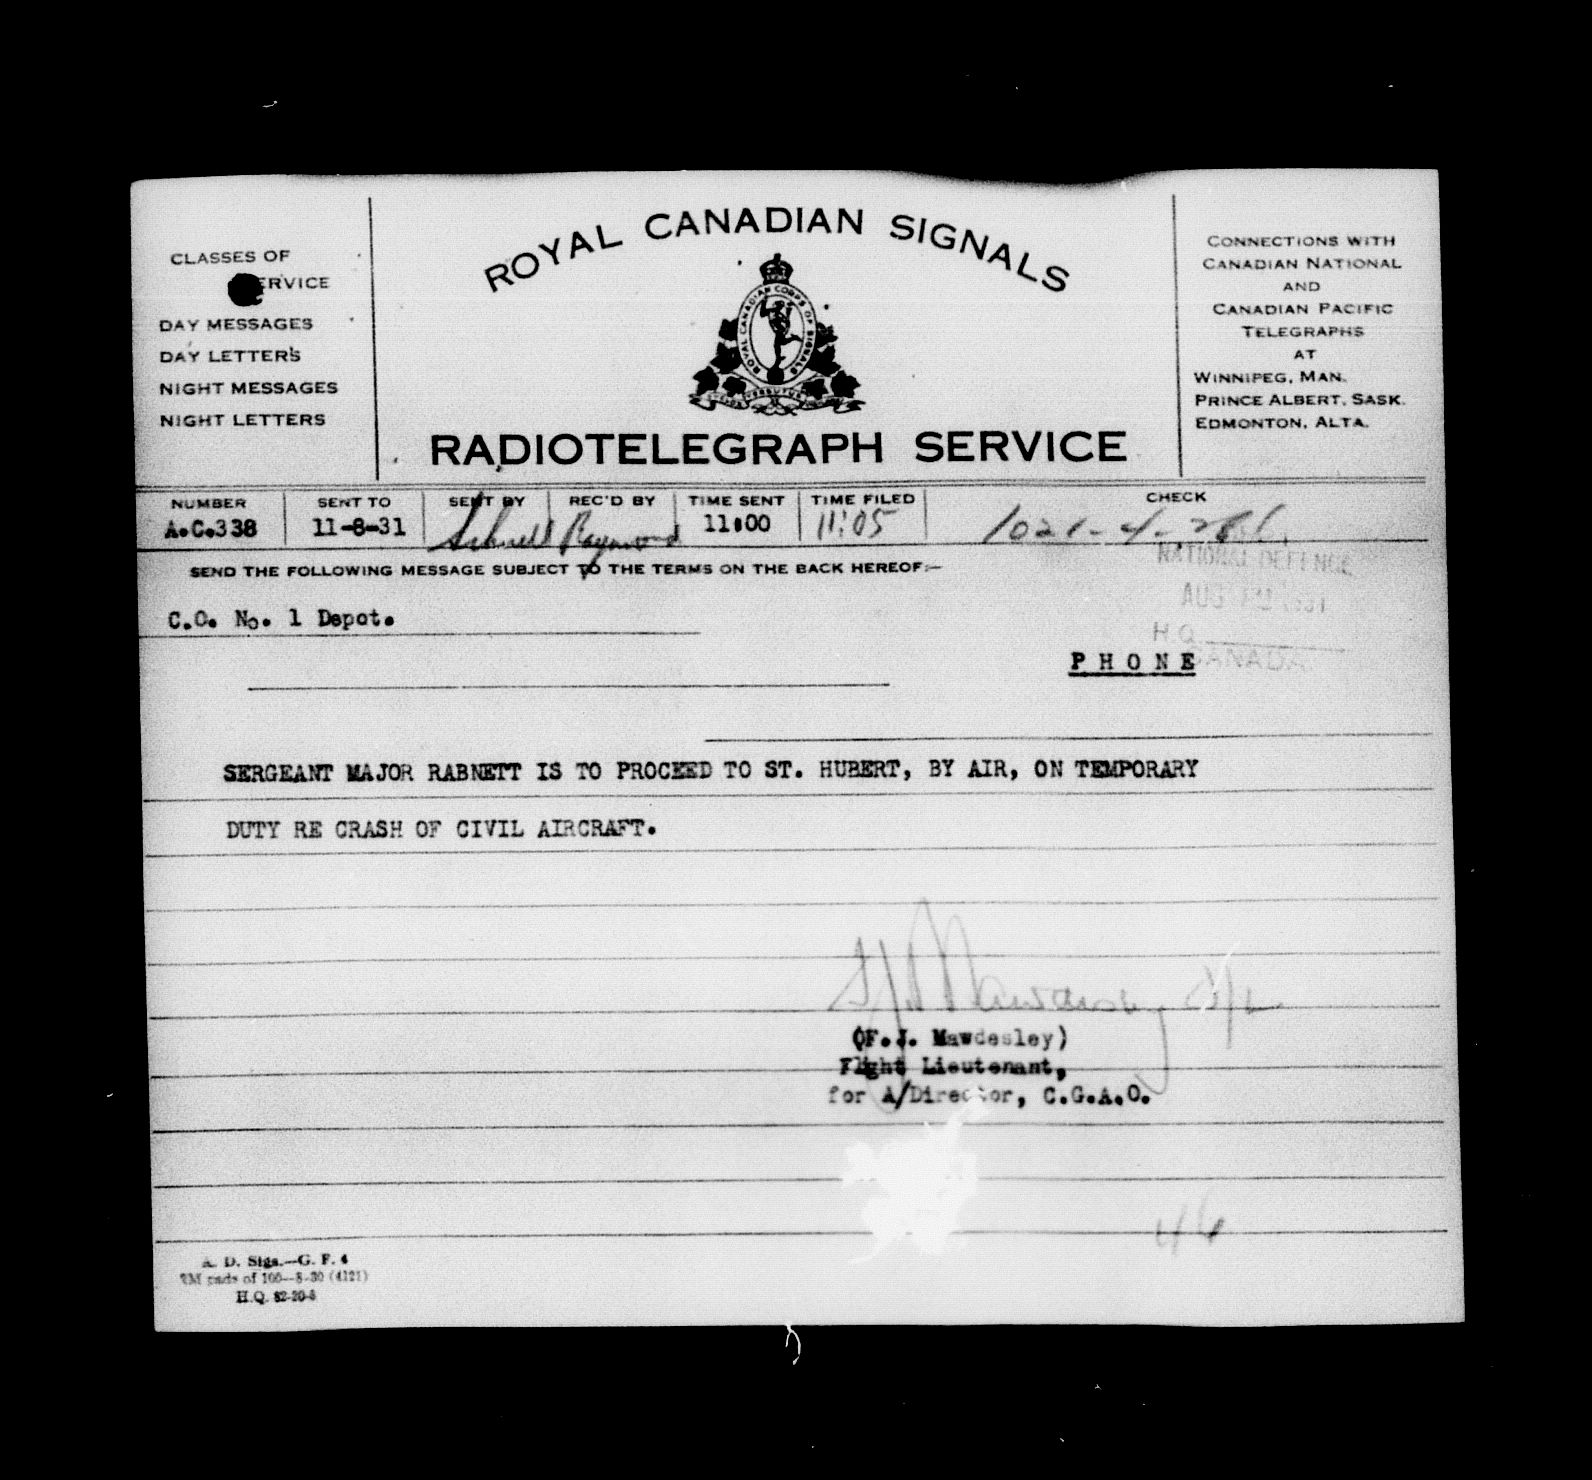 CLASSES OF
SERVICE
DAY MESSAGES
DAY LETTERS
NIGHT MESSAGES
NIGHT LETTERS
ROYAL CANADIAN SIGNALS
ROYAL CANADIAN CORPS OF SIGNALS
RADIOTELEGRAPH SERVICE
CONNECTIONS WITH
CANADIAN NATIONAL
AND
CANADIAN PACIFIC
TELEGRAPHS
AT
WINNIPEG, MAN.
PRINCE ALBERT, SASK.
EDMONTON, ALTA.
NUMBER SENT TO SENT BY REC'D BY TIME SENT TIME FILED CHECK
A.C.338 11-8-31 Raymond 11:00 11:05 1021-4-
SEND THE FOLLOWING MESSAGE SUBJECT TO THE TERMS ON THE BACK HEREOF:—
NATIONAL DEFENCE
AUG
H.Q.
CANADA
C.O. No. 1 Depot.
PHONE
SERGEANT MAJOR RABNETT IS TO PROCEED TO ST. HUBERT, BY AIR, ON TEMPORARY
DUTY RE CRASH OF CIVIL AIRCRAFT.
F.J. Mawdesley F/L
(F.J. Mawdesley)
Flight Lieutenant,
for A/Director, C.G.A.O.
46
A. D. Sigs.—G. F. 4
2M pads of 100—8-30 (4121)
H.Q. 82-20-8